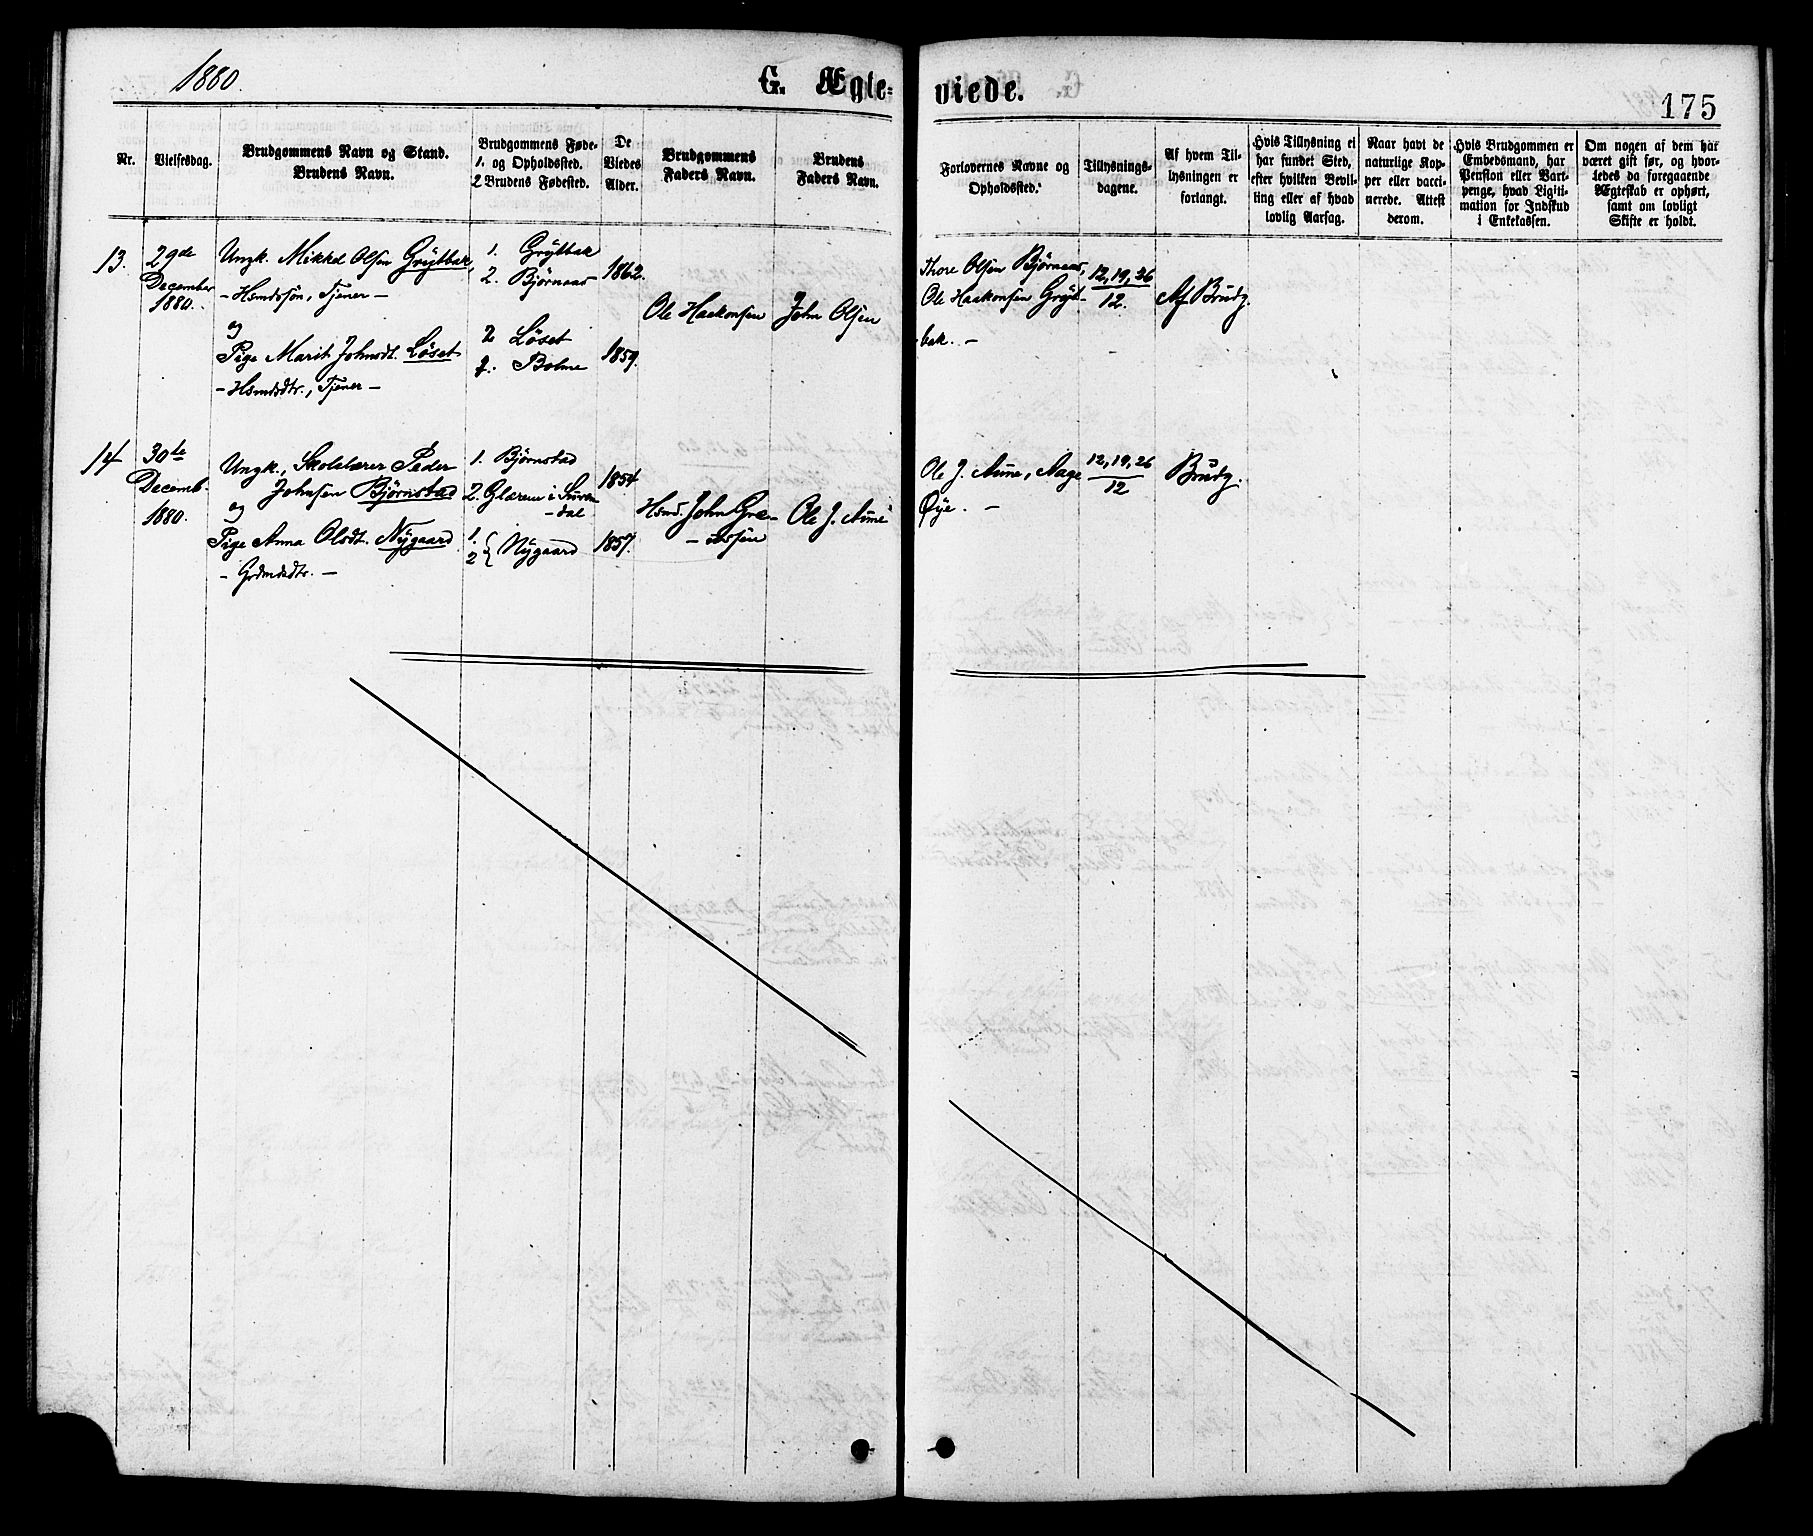 1880.
G. Ægte=
viede.
175
Nr.
Vielsesdag.
Brudgommens Navn og Stand.
Brudens Navn.
Brudgommens Føde-
1. og Opholdssted.
2 Brudens Fødested.
De
Viedes
Alder.
Brudgommens
Faders Navn.
Brudens
Faders Navn.
Forlovernes Navne og
Opholdssted.
Tillysnings-
dagene.
Af hvem Til-
lysningen er
forlangt.
Hvis Tillysning ei
har fundet Sted,
efter hvilken Bevil-
ling eller af hvad
lovlig Aarsag.
Naar havt de
naturlige Kop-
per eller vacci-
nerede. Attest
derom.
Hvis Brudgommen er
Embedsmand, har
Pension eller Vart-
penge, hvad Ligiti-
mation for Indskud
i Enkekassen.
Om nogen af dem har
været gift før, og hvor-
ledes da foregaaende
Ægteskab er ophørt,
samt om lovligt
Skifte er holdt.
13.
29de
December
1880.
Ungk. Mikkel Olsen Grytbak,
- Hsmdssøn, Tjener -
og
Pige Marit Johnsdt. Løset
- Hsmdsdtr., Tjener -
1. Grytbak
2. Bjørnaas
2 Løset
Bolme
1862.
1859.
Ole Haakonsen
John Olsen
Thore Olsen Bjørnaas,
Ole Haakonsen Gryt-
bak. -
12, 19, 26
12.
Af Brudg.
14
30te
Decemb.
1880.
Ungk., Skolelærer Peder
Johnsen Bjørnstad
og
Pige Anna Olsdt. Nygaard
- Grdmdsdtr. -
1. Bjørnstad
2. Glærem i Suren-
- dal
1.
2 { Nygaard
1854
1857.
Hsmd. John Gre-
- Ole J. Aune
Ole J. Aune, Aage
Øye. -
12, 19, 26
12
Brudg.